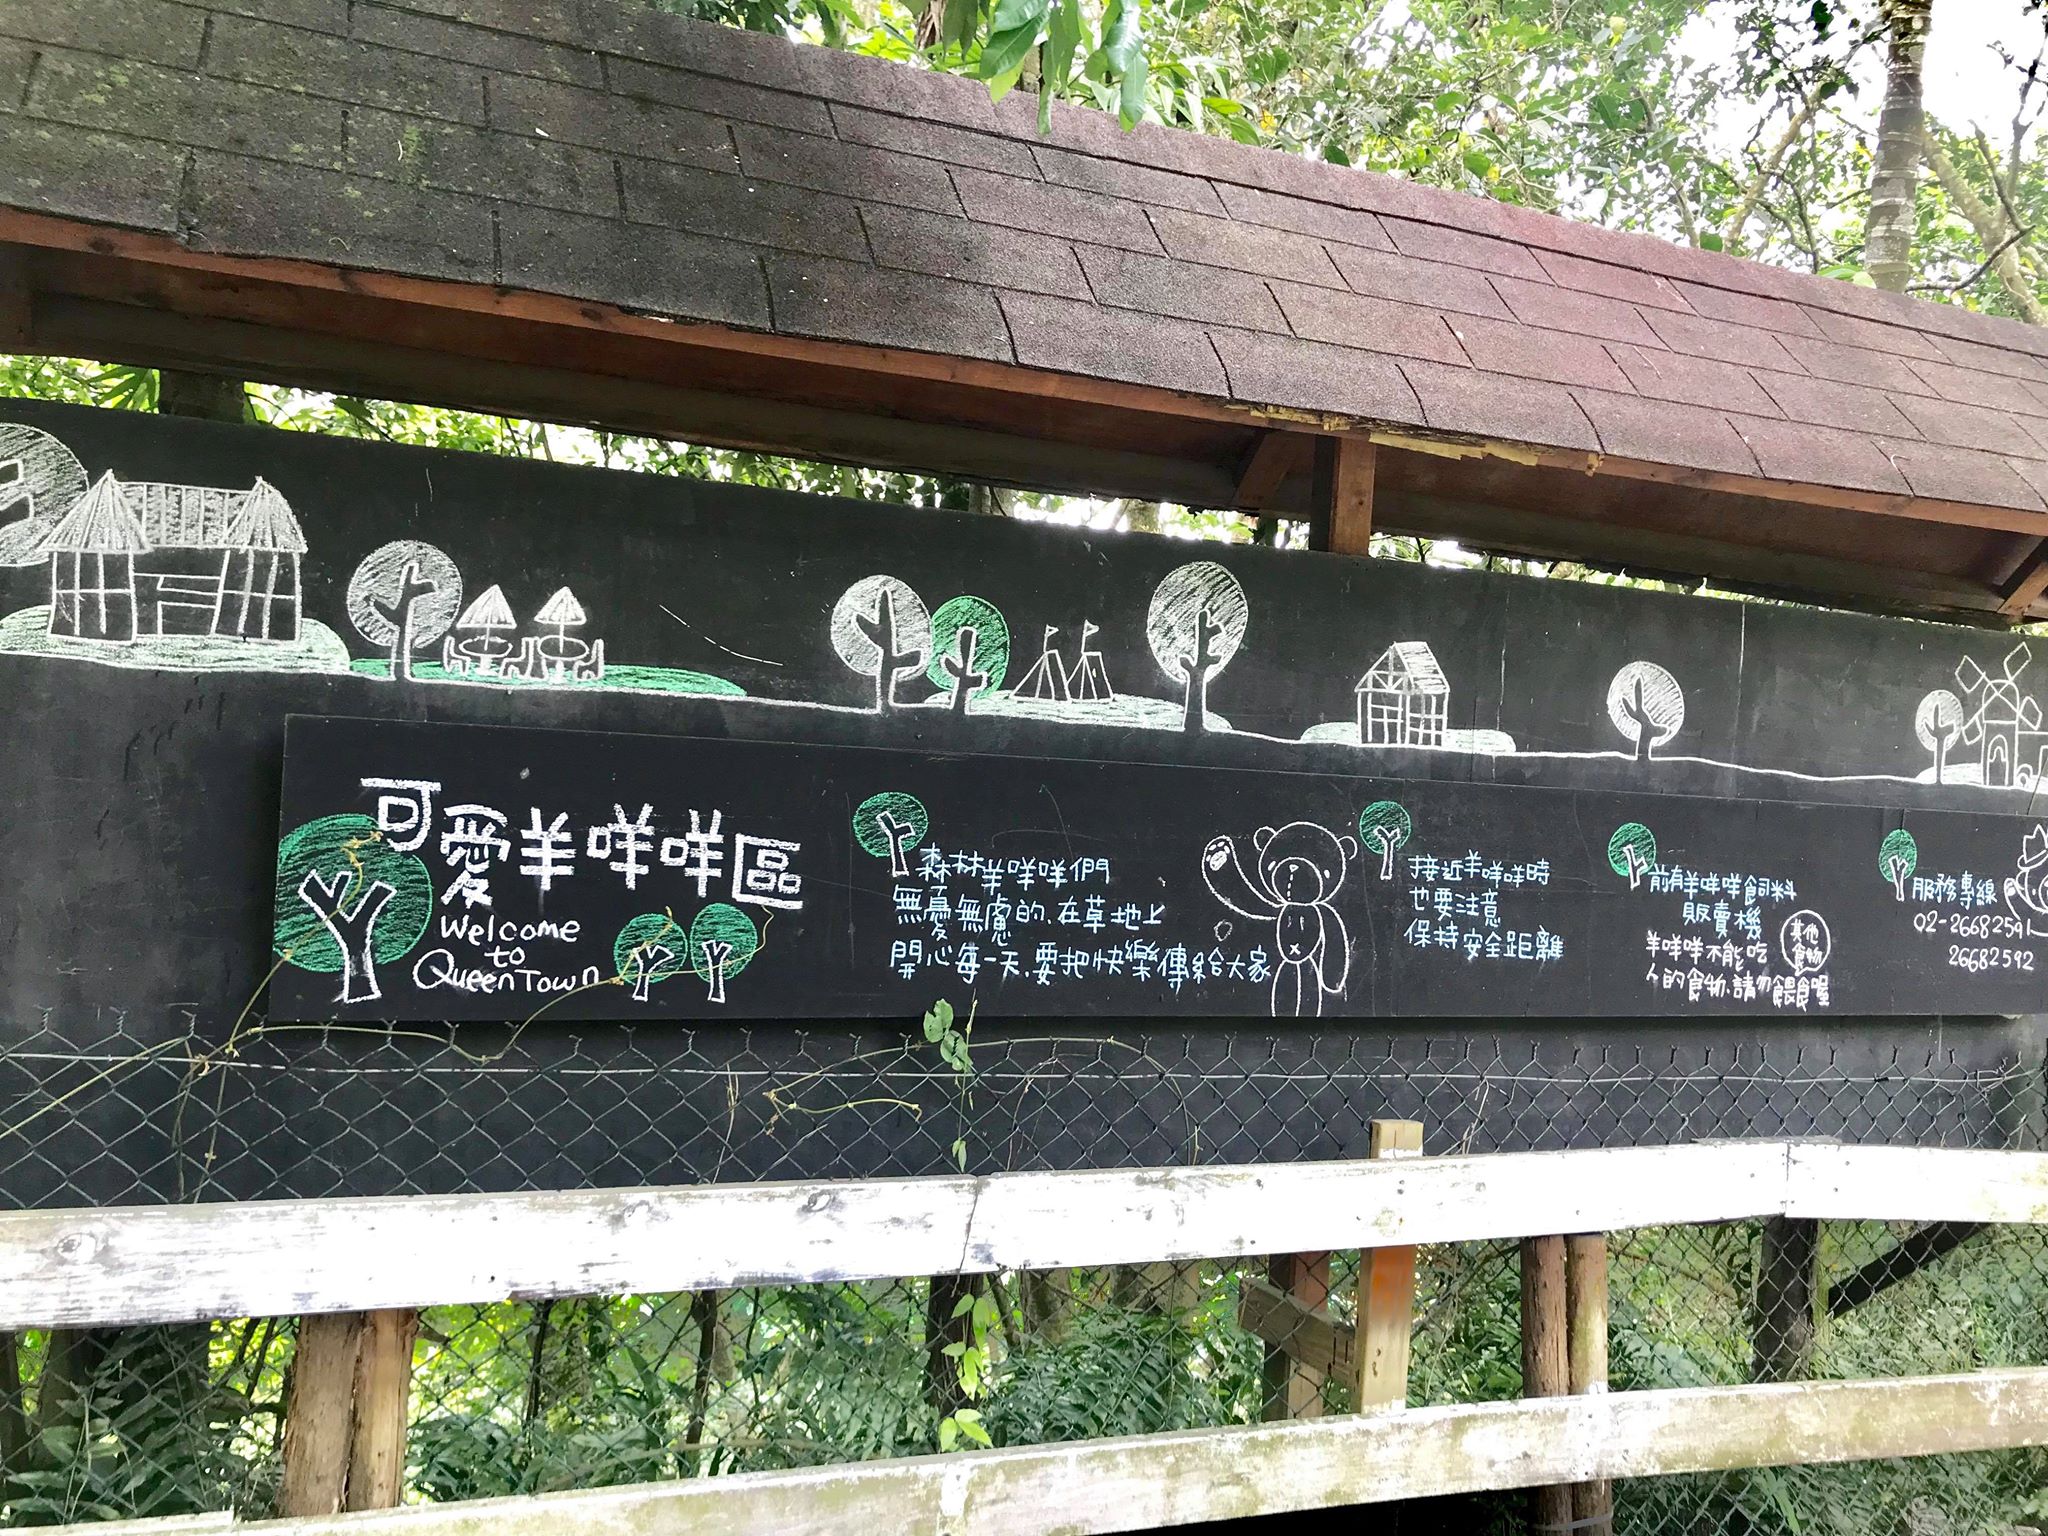 可愛羊咩咩區
Welcome
to
QueenTown
森林羊咩咩們
無憂無慮的、在草地上
開心每一天、要把快樂傳給大家
接近羊咩咩時
也要注意
保持安全距離
前有羊咩咩飼料
販賣機
羊咩咩不能吃
人的食物、請勿餵食喔
其他
食物
服務專線
02-26682591
26682592